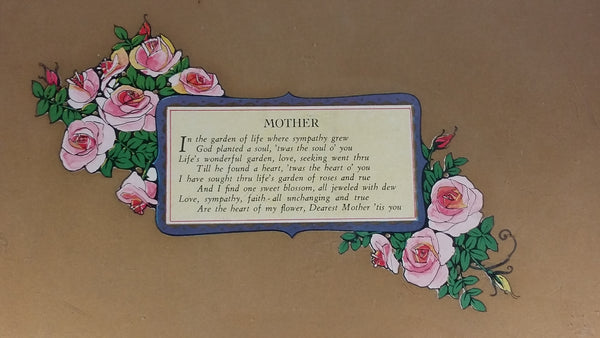 MOTHER
In the garden of life where sympathy grew
God planted a soul, 'twas the soul o' you
Life's wonderful garden, love, seeking went thru
Till he found a heart, 'twas the heart o' you
I have sought thru life's garden of roses and rue
And I find one sweet blossom, all jeweled with dew
Love, sympathy, faith - all unchanging and true
Are the heart of my flower, Dearest Mother 'tis you